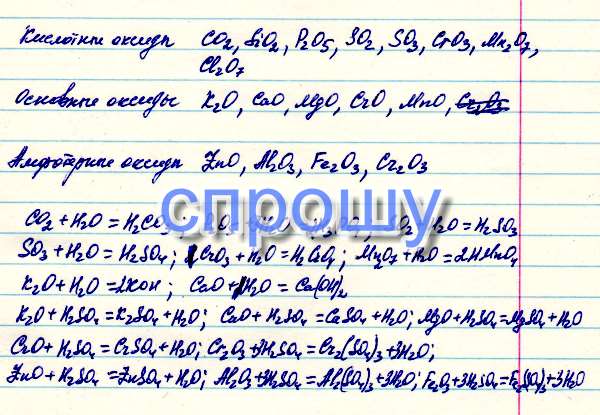 Кислотные оксиды CO2, SiO2, P2O5, SO2, SO3, CrO3, Mn2O7,
Cl2O7
Основные оксиды K2O, CaO, MgO, CrO, MnO, Cr2O3
Амфотерные оксиды ZnO, Al2O3, Fe2O3, Cr2O3
спрошу
CO2 + H2O = H2CO3 SO2 + H2O = H2SO3
SO3 + H2O = H2SO4; CrO3 + H2O = H2CrO4; Mn2O7 + H2O = 2HMnO4
K2O + H2O = 2KOH; CaO + H2O = Ca(OH)2
K2O + H2SO4 = K2SO4 + H2O; CaO + H2SO4 = CaSO4 + H2O; MgO + H2SO4 = MgSO4 + H2O
CrO + H2SO4 = CrSO4 + H2O; Cr2O3 + 3H2SO4 = Cr2(SO4)3 + 3H2O;
ZnO + H2SO4 = ZnSO4 + H2O; Al2O3 + 3H2SO4 = Al2(SO4)3 + 3H2O; Fe2O3 + 3H2SO4 = Fe2(SO4)3 + 3H2O